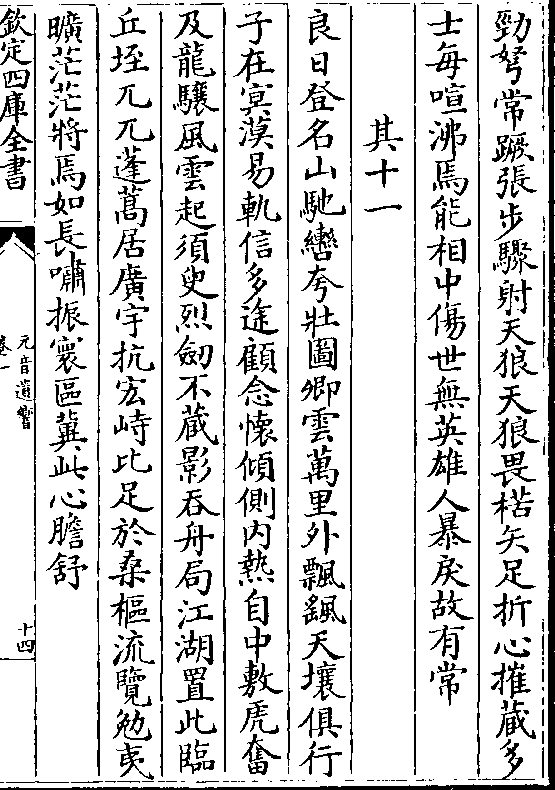 勁弩常蹶張步驟射天狼天狼畏楛矢足折心摧藏多
士每喧沸焉能相中傷世無英雄人暴戾故有常
其十一
良日登名山馳轡夸壯圖卿雲萬里外飄颻天壤俱行
子在㝠漠易軌信多途顧念懐傾側内熱自中敷虎奮
及龍驤風雲起須臾烈劒不蔵影吞舟局江湖置此臨
丘垤兀兀蓬蒿居廣宇抗宏峙比足於桑樞流覽勉夷
曠茫茫將焉如長嘯振寰區冀此心膽舒
欽定四庫全書
元音遺響
卷一
十四